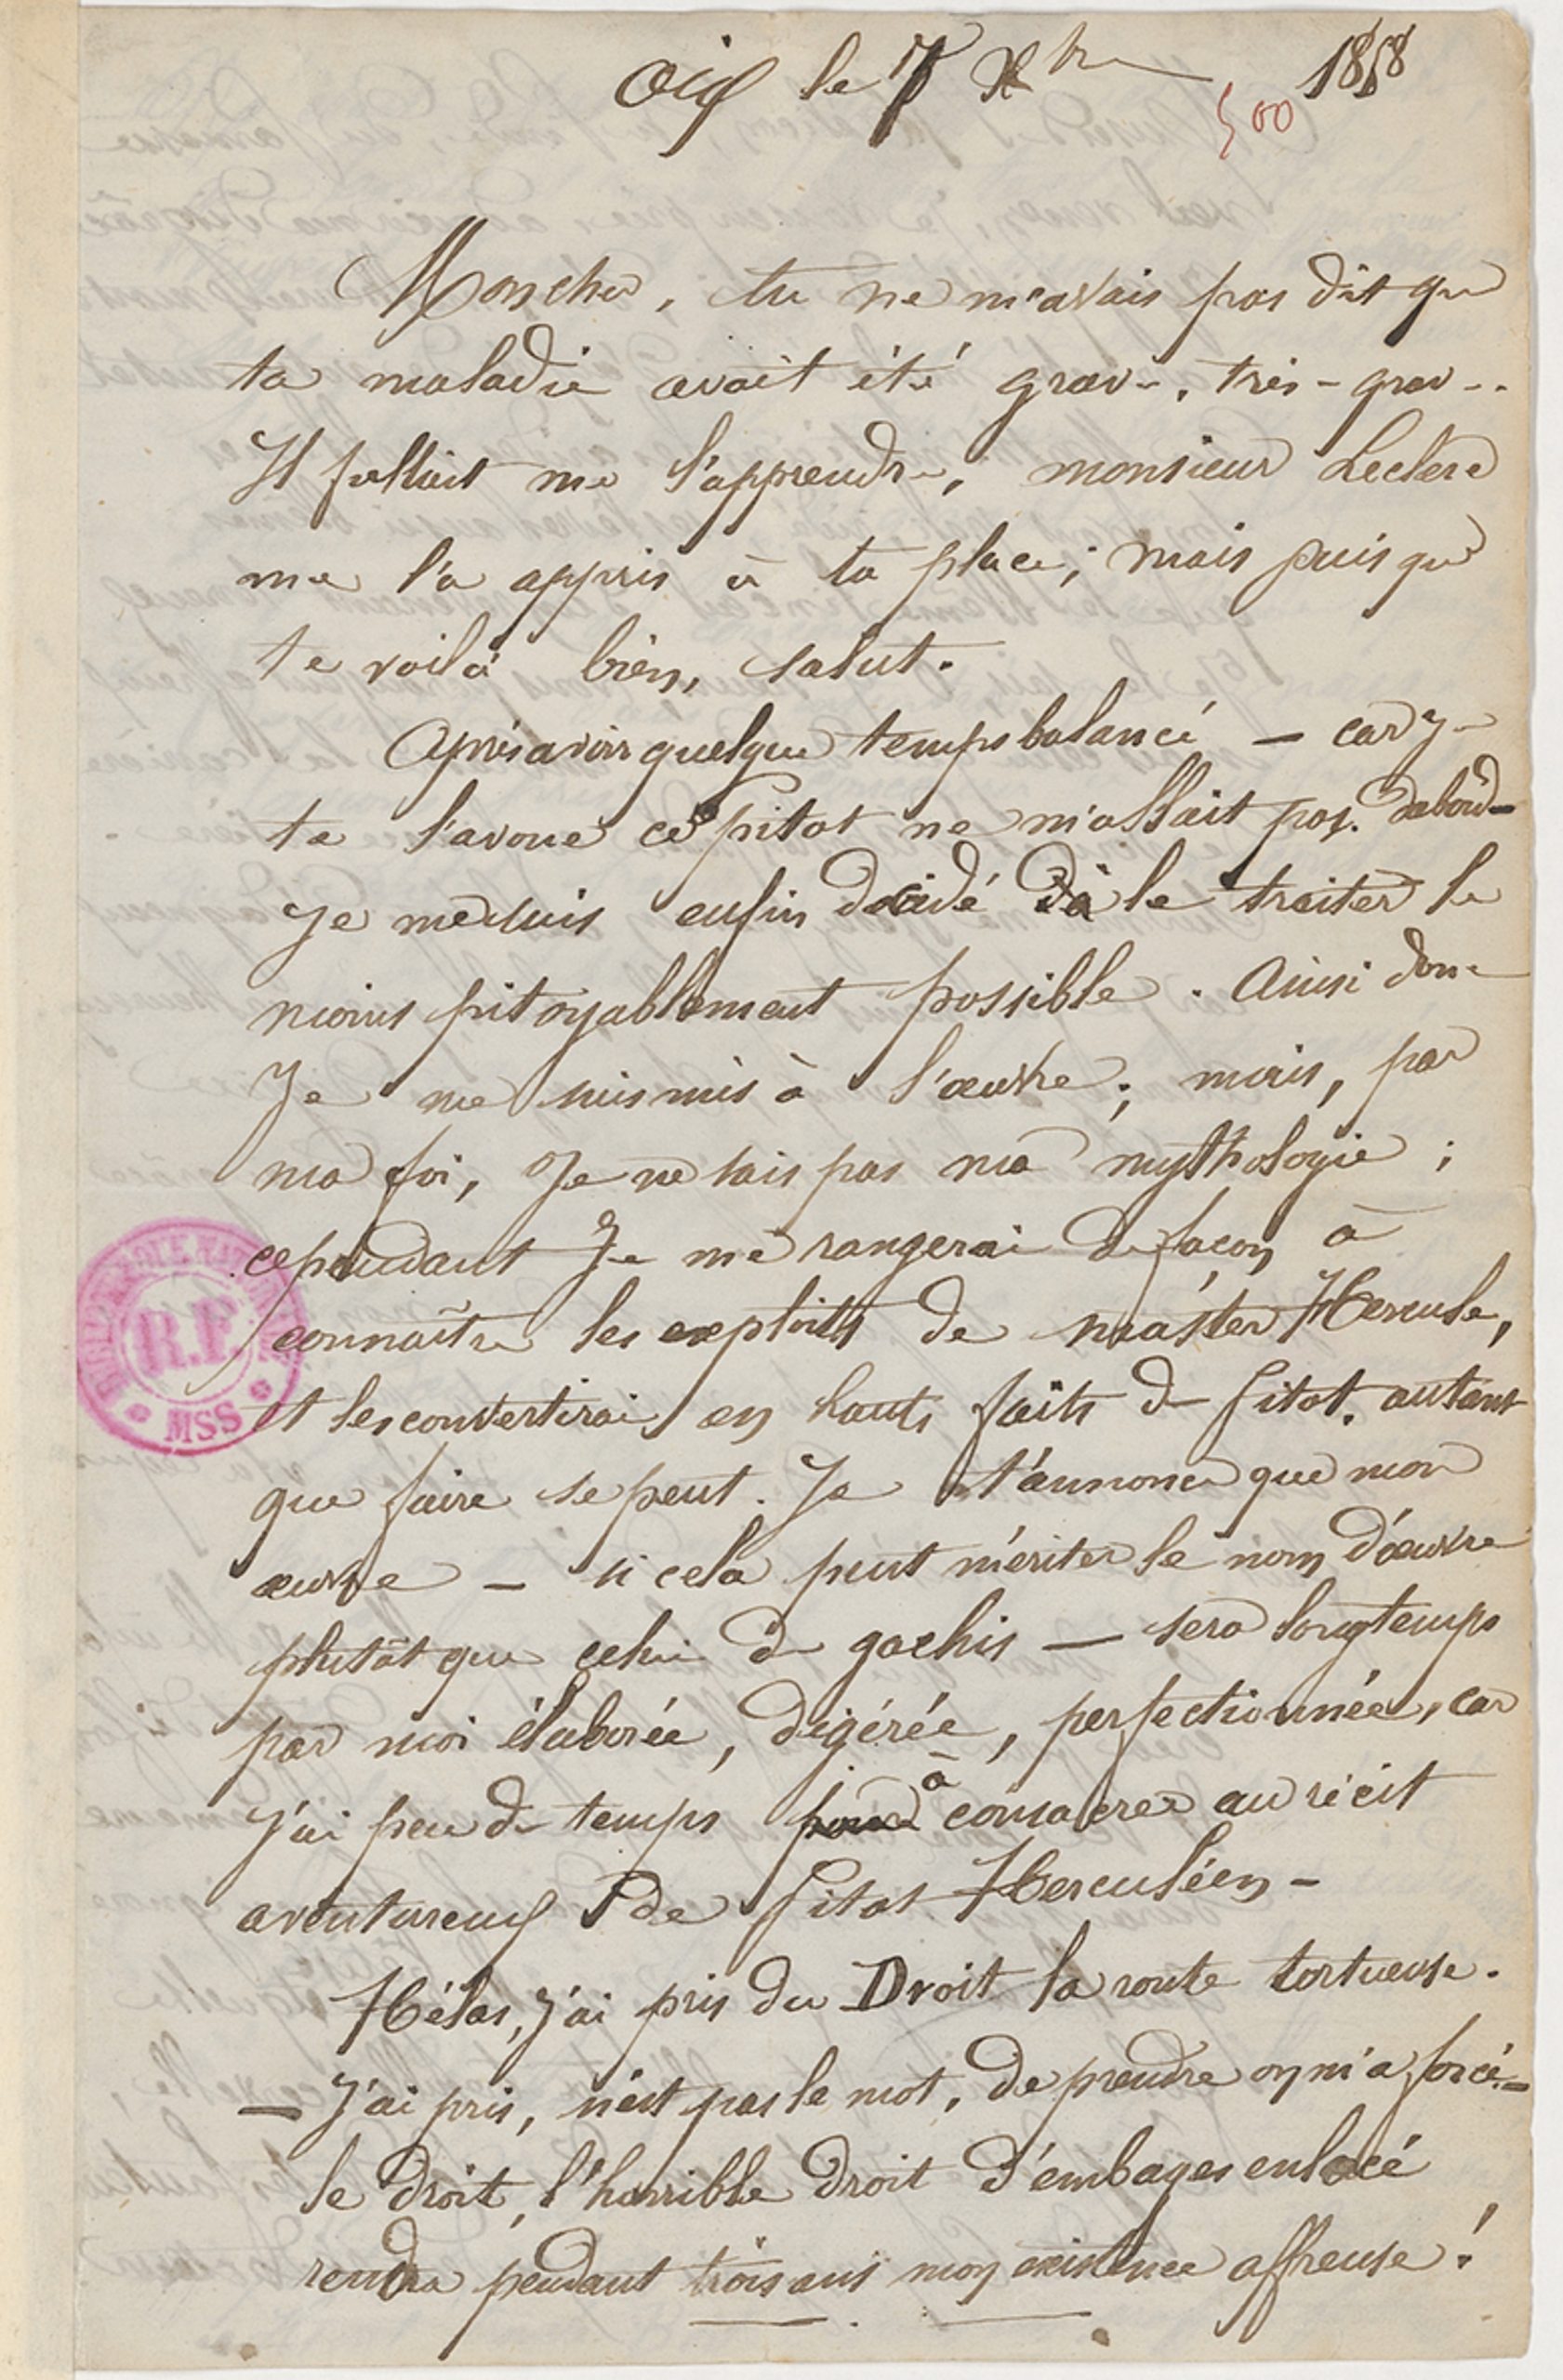 Aix le 7 Xbre 1858
500
Mon cher, tu ne m'avais pas dit que
ta maladie avait été grave, très-grave.
Il fallait me l'apprendre, monsieur Leclère
me l'a appris à ta place; mais puisque
te voilà bien, salut.
Après avoir quelque temps balancé — car je
te l'avoue ce Pitot ne m'allait pas d'abord —
Je me suis enfin décidé à le traiter le
moins pitoyablement possible. Ainsi donc
Je me suis mis à l'œuvre; mais, par
ma foi, Je ne sais pas ma mythologie;
cependant Je me rangerai de façon à
connaître les exploits de master Hercule,
et les convertirai en hauts faits de Pitot, autant
que faire se peut. Je t'annonce que mon
œuvre — si cela peut mériter le nom d'œuvre
plutôt que celui de gachis — sera longtemps
par moi élaborée, digérée, perfectionnée, car
J'ai peu de temps à consacrer au récit
aventureux de Pitot Herculéen —
Hélas, j'ai pris du Droit la route tortueuse.
— J'ai pris, n'est pas le mot, de prendre on m'a forcé! —
le droit, l'horrible droit d'embages enlacé
rendra pendant trois ans mon existence affreuse!
BIBLIOTHÈQUE NATIONALE
R.F.
MSS